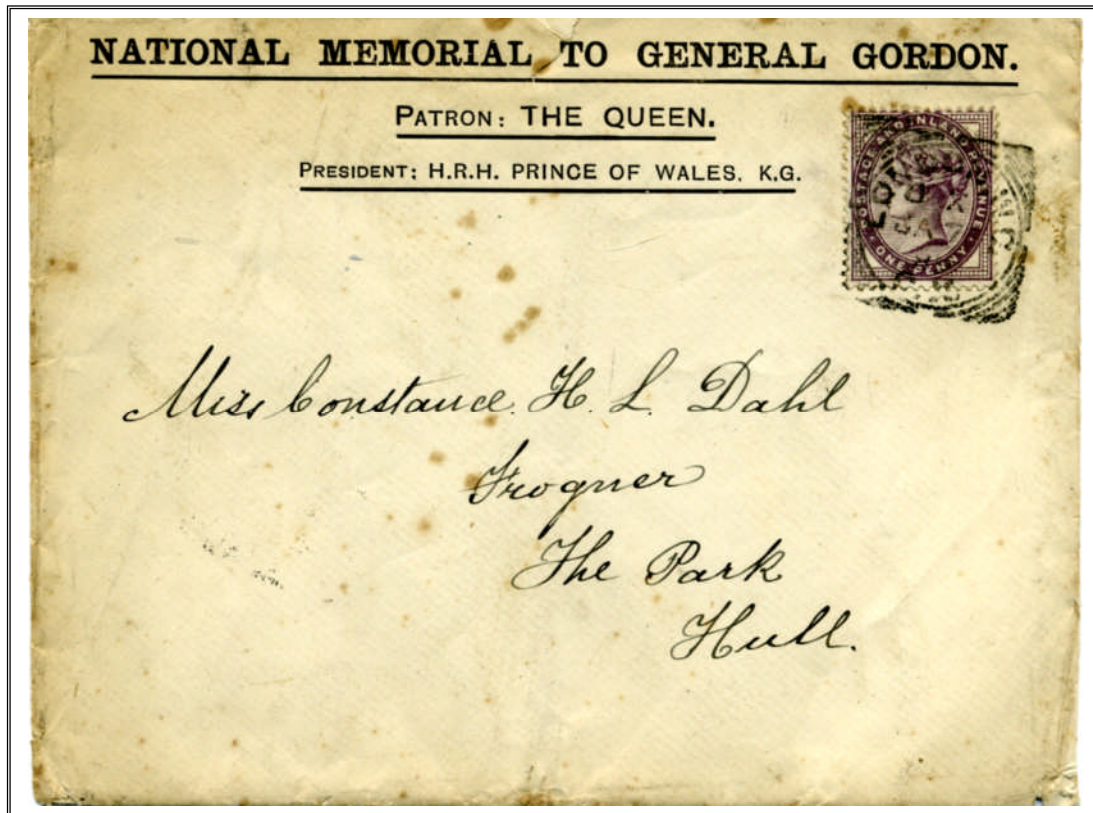 NATIONAL MEMORIAL TO GENERAL GORDON.
PATRON: THE QUEEN.
PRESIDENT: H.R.H. PRINCE OF WALES. K.G.
POSTAGE AND INLAND REVENUE
ONE PENNY
Miss Constance. H. L. Dahl
Frogner
The Park
Hull.